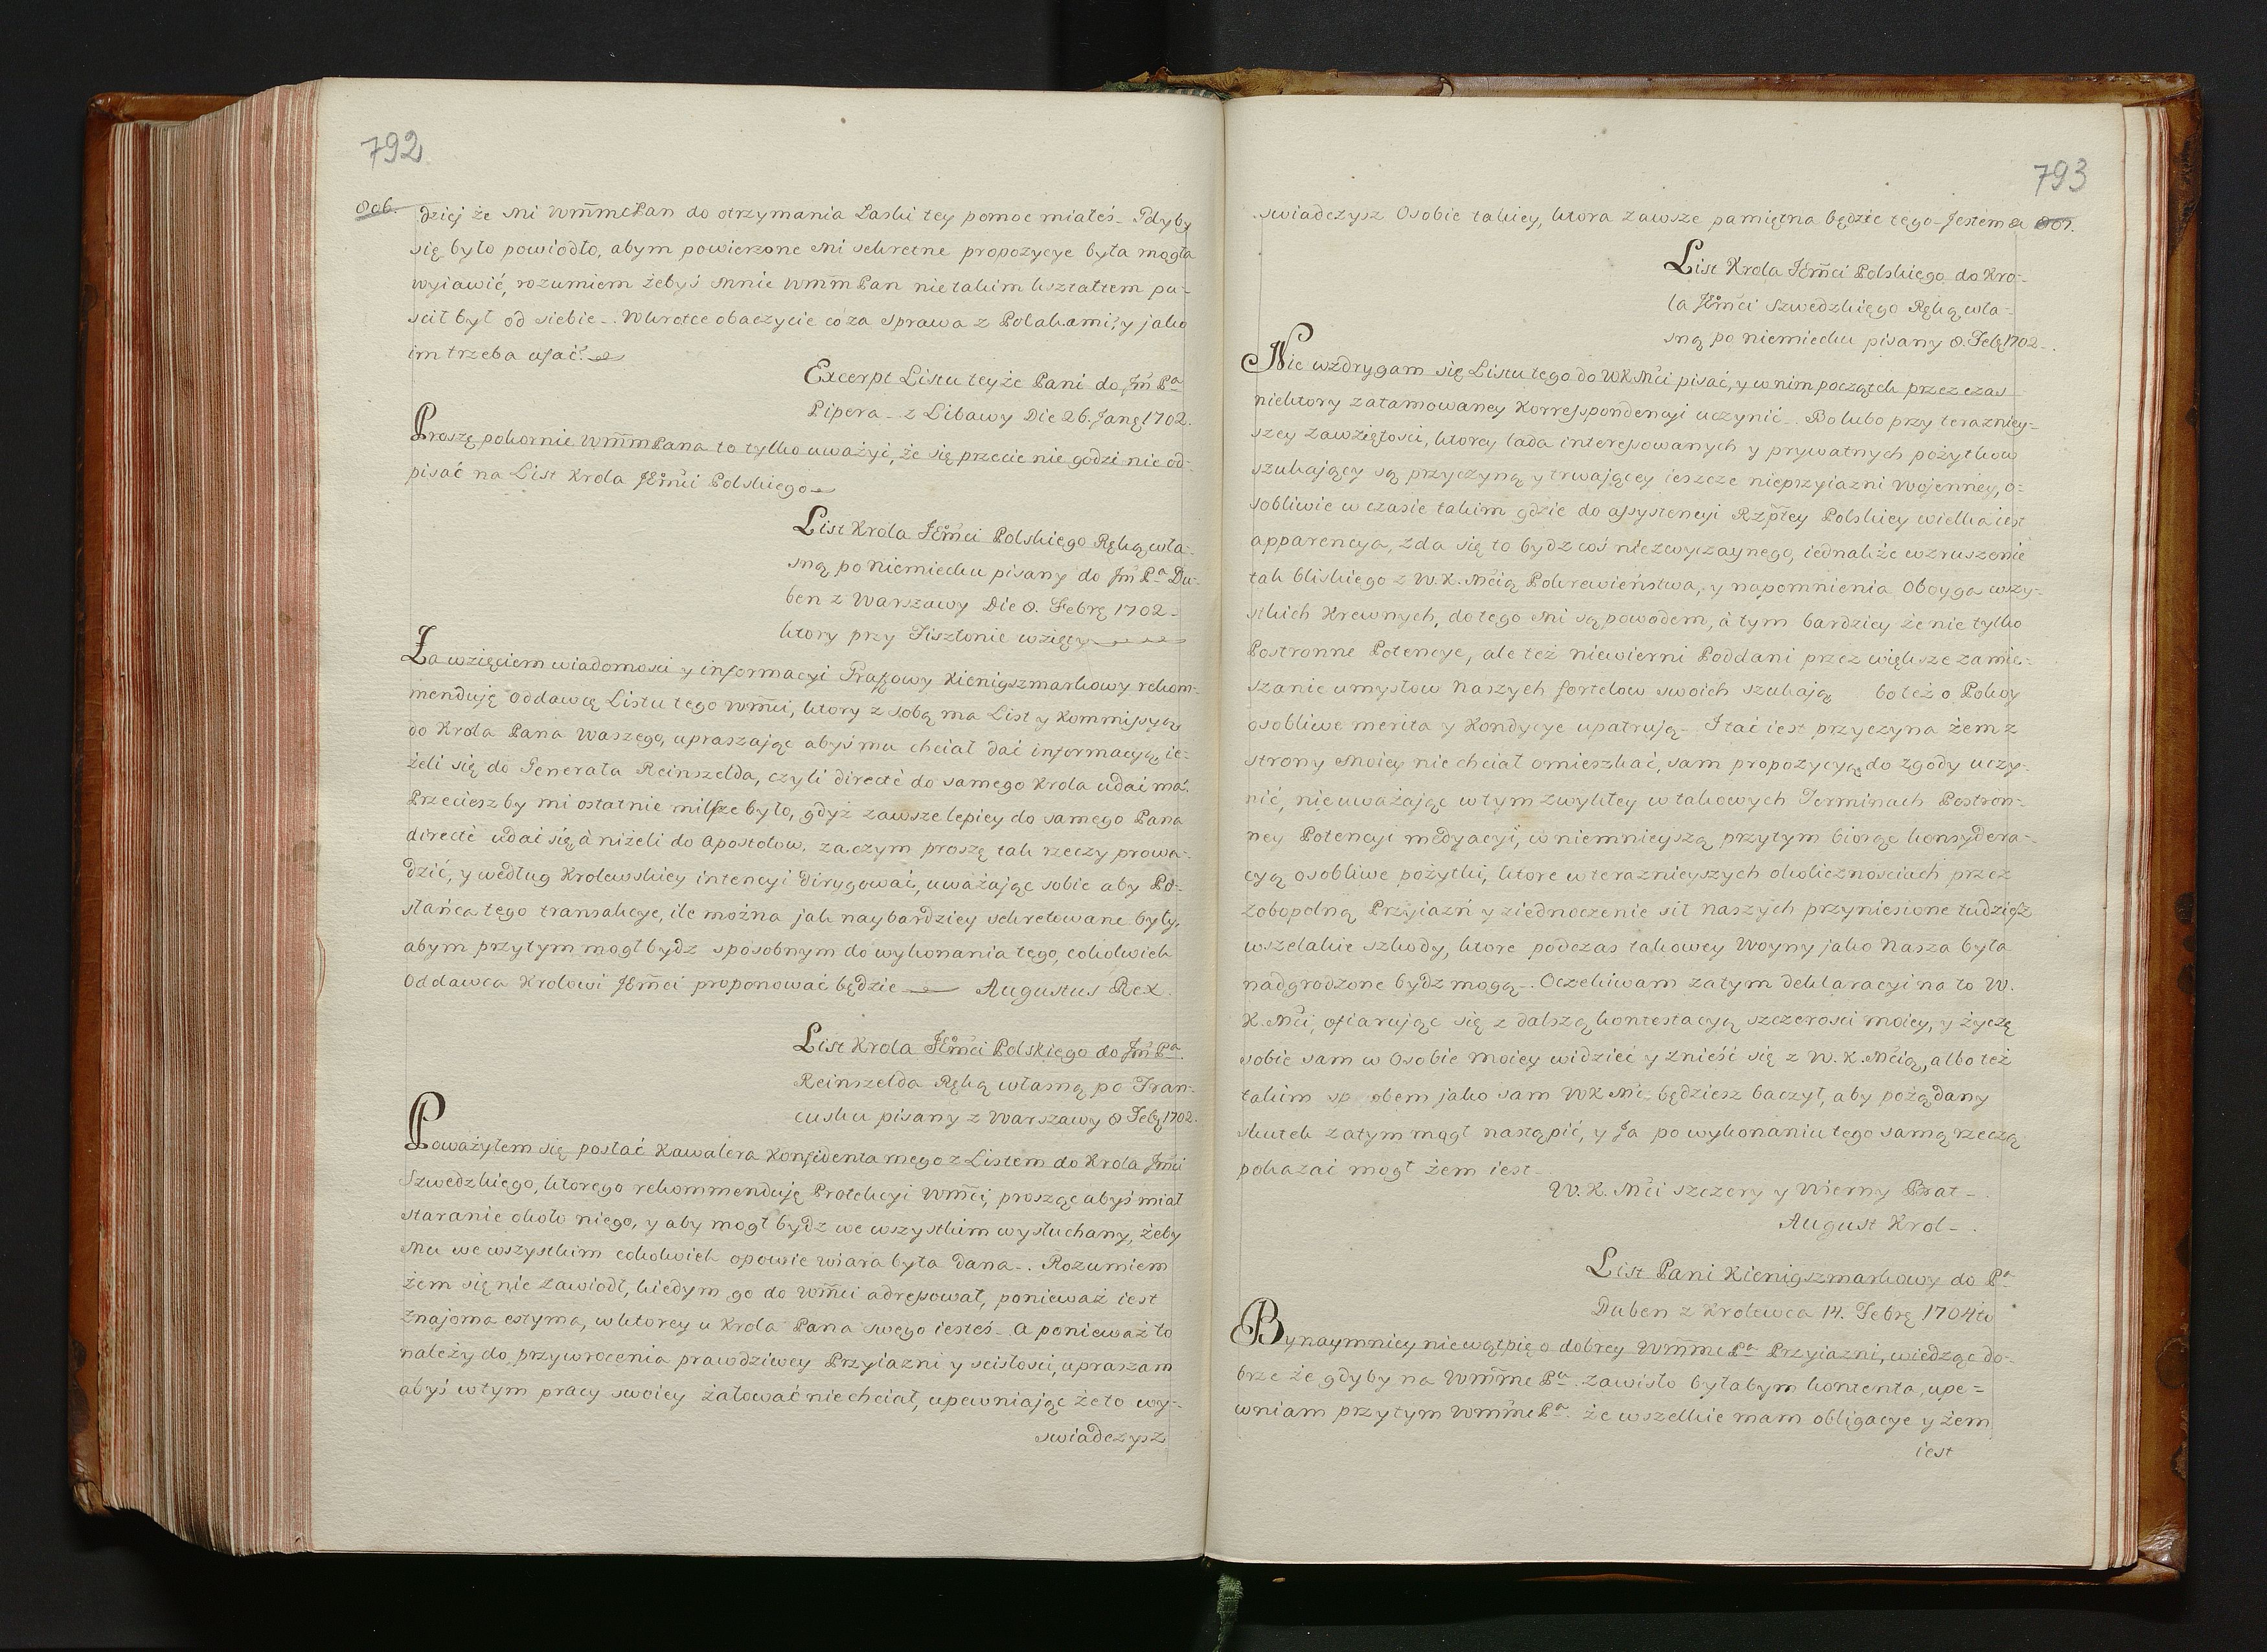 792
806.
dziej że mi Wm̄mcPan do otrzymania Łaski tey pomoc miałeś. Gdyby
się było powiodło, abym powierzone mi sekretne propozycye była mogła
wyiawić, rozumiem żebyś mnie Wm̄mPan nie takim kształtem pu-
ścił był od siebie. Wkrotce obaczycie co za sprawa z Polakami, y jako
im trzeba ufać.
Excerpt Listu teyże Pani do Jm̄ Pa
Pipera z Libawy Die 26. Janꝗ 1702.
Proszę pokornie Wm̄mPana to tylko uważyć, że się przecie nie godzi nie od-
pisać na List Krola JEm̄ci Polskiego
List Krola JEm̄ci Polskiego Ręką wła-
sną po niemiecku pisany do Jm̄ Pa Du-
ben z Warszawy Die 8. Febrę 1702
ktory przy Fisztonie wzięty
Za wzięciem wiadomosci y informacyi Grafowy Kienigszmarkowy rekom-
menduię Oddawcę Listu tego Wm̄ci, ktory z sobą ma List y Kommissyą
do Krola Pana Waszego, upraszając abyś mu chciał dać informacyą ie-
żeli się do Generała Reinszelda, czyli directè do samego Krola udać ma.
Przecieszby mi ostatnie milsze było, gdyż zawsze lepiey do samego Pana
directè udać się à niżeli do Apostołow, zaczym proszę tak rzeczy prowa-
dzić, y według Krolewskiey intencyi dirygować, uważając sobie aby Po-
słańca tego transakcye, ile można jak naybardziey sekretowane były,
abym przytym mogł bydz sposobnym do wykonania tego, cokolwiek
Oddawca Krolowi JEm̄ci proponować będzie Augustus Rex.
List Krola JEm̄ci Polskiego do Jm̄ Pa
Reinszelda Ręką własną po Fran-
cusku pisany z Warszawy 8 Febꝗ 1702.
Poważyłem się posłać Kawalera Konfidenta mego z Listem do Krola Jm̄ci
Szwedzkiego, ktorego rekommenduię Protekcyi Wm̄ci, proszę abyś miał
staranie około niego, y aby mogł bydz we wszystkim wysłuchany, żeby
Mu we wszystkim cokolwiek opowie wiara była dana. Rozumiem
żem się nie zawiodł, kiedym go do Wm̄ci adresował, ponieważ iest
znajoma estyma, w ktorey u Krola Pana swego iesteś. A ponieważ to
należy do przywrocenia prawdziwey Przyiazni y scisłości, upraszam
abyś w tym pracy swoiey żałować nie chciał, upewniając że to wy-
swiadczysz
793
swiadczysz Osobie takiey, ktora zawsze pamiętna będzie tego. Jestem &
807.
List Krola JEm̄ci Polskiego do Kro-
la JEm̄ci Szwedzkiego Ręką wła-
sną po niemiecku pisany 8. Febꝗ 1702.
Nie wzdrygam się Listu tego do WKMci pisać, y w nim początek przez czas
niektory zatamowaney Korrespondencyi uczynić. Bo lubo przy teraznie-
szey zawziętości, ktorey lada interesowanych y prywatnych pożytkow
szukaiący są przyczyną y trwaiącey ieszcze nieprzyiazni Wojenney, o-
sobliwie w czasie takim gdzie do assystencyi Rzpltey Polskiey wielka iest
apparencya, zda się to bydz coś niezwyczaynego, iednakże wzruszenie
tak bliskiego z W. K. Mcią Pokrewieństwa, y napomnienia Oboyga wszy-
stkich Krewnych, do tego mi są powodem, à tym bardziey że nie tylko
Postronne Potencye, ale też niewierni Poddani przez większe zamie-
szanie umysłow Naszych fortelow swoich szukaią bo też o Pokoy
osobliwe merita y Kondycye upatruią. I tać iest przyczyna żem z
strony moiey nie chciał omieszkać, sam propozycyą do zgody uczy-
nić, nie uważając w tym zwykłey w takowych Terminach Postron-
ney Potencyi medyacyi, w niemnieyszą przytym biorąc konsydera-
cyą osobliwe pożytki, ktore w teraznieyszych okolicznosciach przez
zobopolną Przyiazń y ziednoczenie sił Naszych przyniesione tudzież
wszelakie szkody, ktore podczas takowey Woyny jako Nasza była
nadgrodzone bydz mogą. Oczekiwam zatym deklaracyi na to W.
K. Mci, ofiarując się z dalszą kontestacyą szczerosci moiey, y życzę
sobie sam w Osobie moiey widzieć y znieść się z W. K. Mcią, albo też
takim sposobem jako sam WKMc będziesz baczył, aby pożądany
skutek zatym mogł nastąpić, y Ja po wykonaniu tego samą rzeczą
pokazać mogł żem iest
W. K. Mci szczery y Wierny Brat.
August Krol.
List Pani Kienigszmarkowy do Pa
Duben z Krolewca 14. Febrę 1704to
Bynaymniey nie wątpię o dobrey Wm̄mc Pa Przyiazni, wiedząc do-
brze że gdyby na Wm̄mc Pa zawisło byłabym kontenta, upe-
wniam przytym Wm̄mc Pa że wszelkie mam obligacye y żem
iest